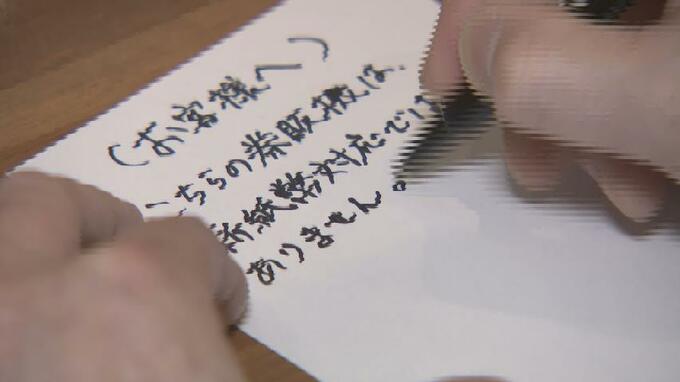 (お客様へ)
こちらの券販機は、
新紙幣対応では
ありません。